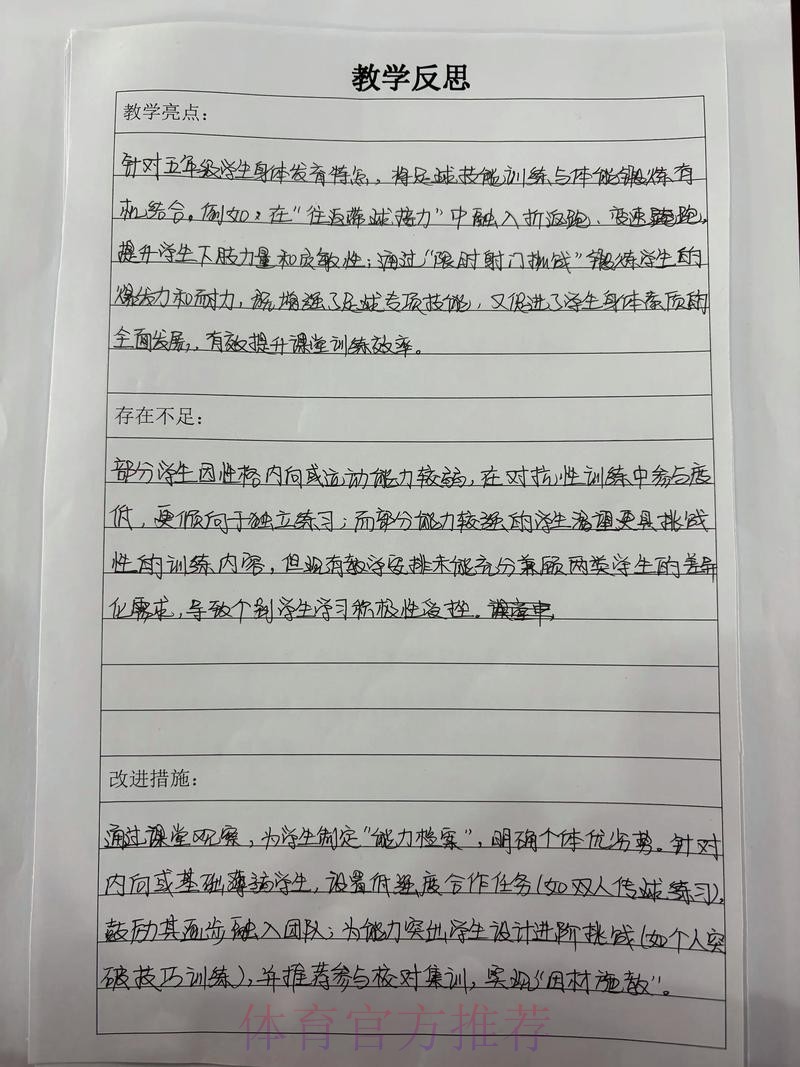 教学反思
教学亮点：
针对五年级学生身体发育特点，将足球技能训练与体能锻炼有
机结合。例如：在“往返带球接力”中融入折返跑、变速跑，
提升学生下肢力量和灵敏性；通过“限时射门挑战”锻炼学生的
爆发力和耐力，既增强了足球专项技能，又促进了学生身体素质的
全面发展，有效提升课堂训练效率。
存在不足：
部分学生因性格内向或运动能力较弱，在对抗性训练中参与度
低，更倾向于独立练习；而部分能力较强的学生渴望更具挑战
性的训练内容，但现有教学安排未能充分兼顾两类学生的差异
化需求，导致个别学生学习积极性受挫。
改进措施：
通过课堂观察，为学生制定“能力档案”，明确个体优劣势。针对
内向或基础薄弱学生，设置低强度合作任务（如双人传球练习），
鼓励其逐步融入团队；为能力突出学生设计进阶挑战（如个人突
破技巧训练），并推荐参与校对集训，实现“因材施教”。
体育官方推荐